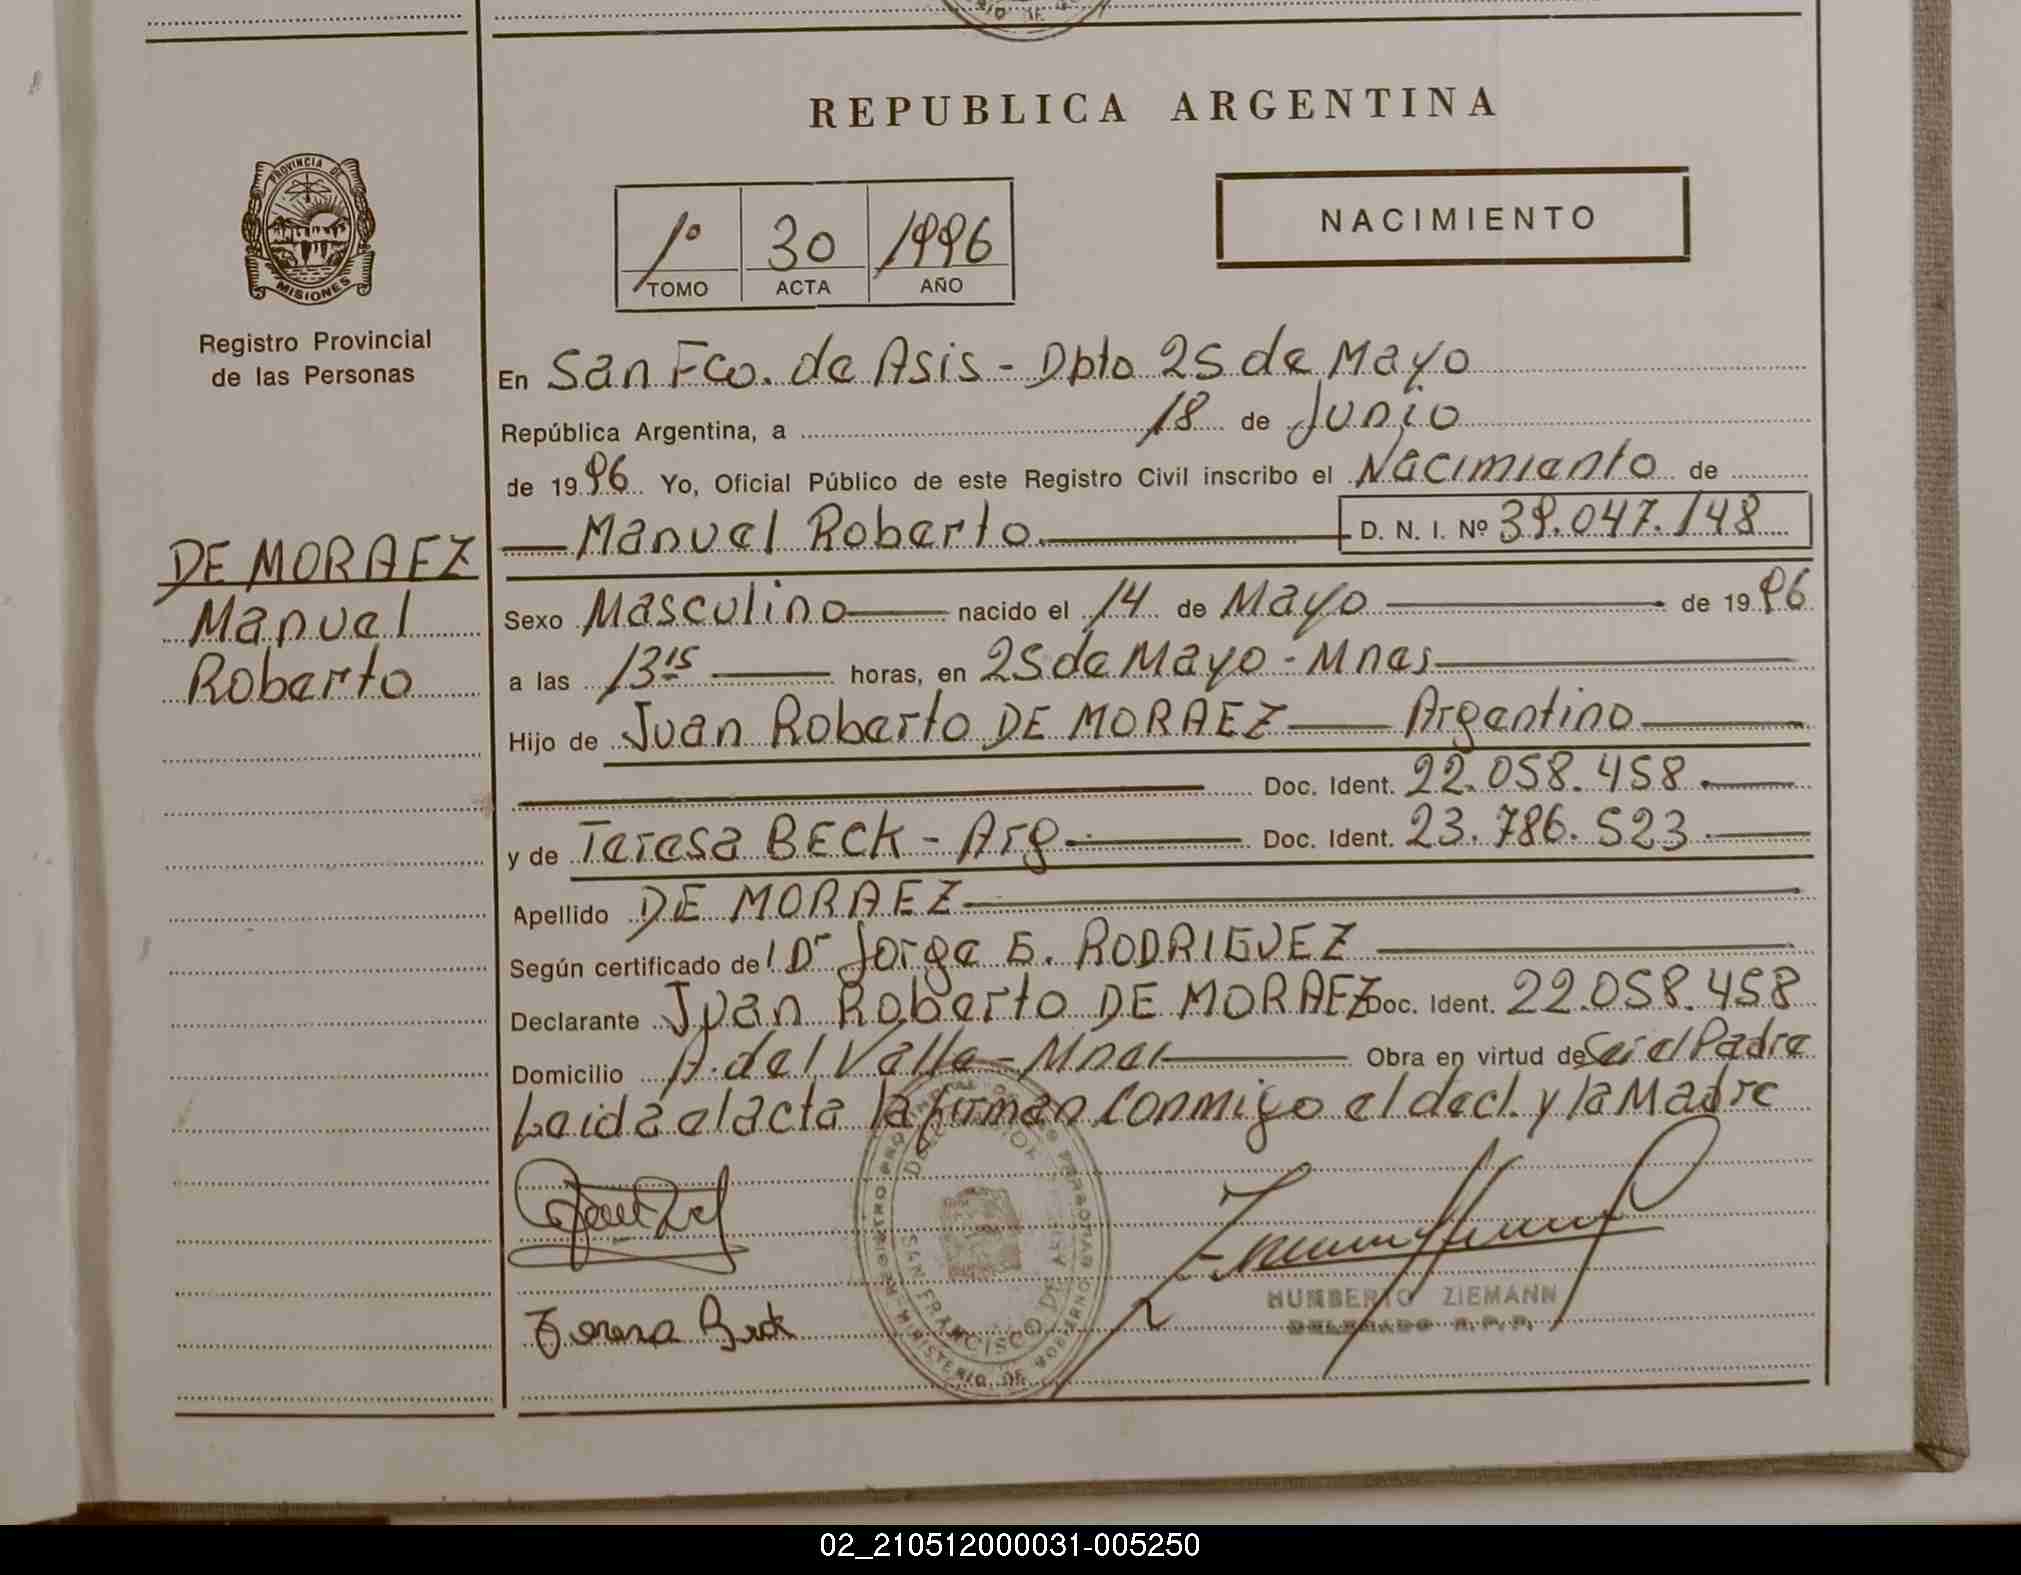 REPUBLICA ARGENTINA
PROVINCIA DE MISIONES
Registro Provincial
de las Personas
NACIMIENTO
1º 30 1996
TOMO ACTA AÑO
En San Fco. de Asis - Dpto 25 de Mayo
República Argentina, a 18 de Junio
de 1996 Yo, Oficial Público de este Registro Civil inscribo el Nacimiento de
Manuel Roberto D. N. I. Nº 39.047.148
DE MORAEZ
Manuel
Roberto
Sexo Masculino nacido el 14 de Mayo de 1996
a las 13 15 horas, en 25 de Mayo - Mnes
Hijo de Juan Roberto DE MORAEZ Argentino
Doc. Ident. 22.058.458
y de Teresa BECK - Arg Doc. Ident. 23.786.523
Apellido DE MORAEZ
Según certificado del Dr Jorge E. RODRIGUEZ
Declarante Juan Roberto DE MORAEZ Doc. Ident. 22.058.458
Domicilio A. del Valle - Mnes Obra en virtud de Ser el Padre
Leida el acta la firman conmigo el decl. y la Madre
Teresa Beck
SAN FRANCISCO DE ASIS
MINISTERIO DE GOBIERNO
HUMBERTO ZIEMANN
DELEGADO R.P.P.
02_210512000031-005250